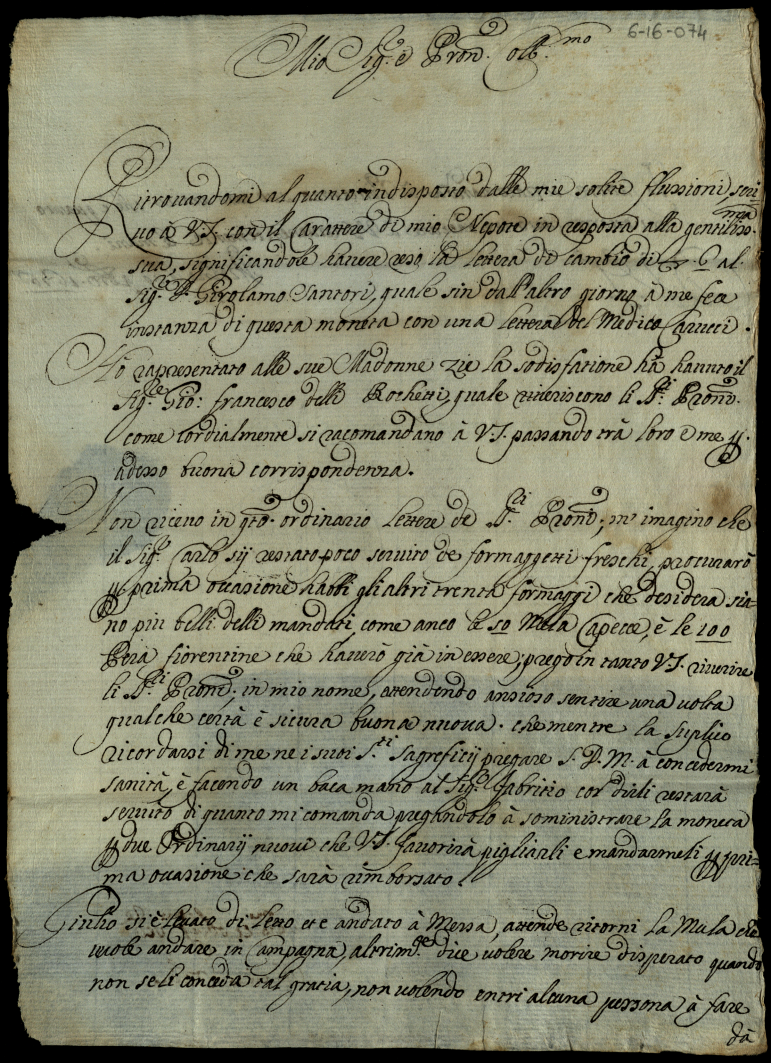 6-16-074
Mio Sig.re e Pron. oss.mo
Ritrouandomi al quanto indisposto dalle mie solite flussioni, scri
uo à V.S. con il Carattere di mio Nepote in risposta alla gentiliss.ma
sua, significandole hauere reso la lettera de cambio di 6 al
Sig.re D. Girolamo Santori, quale sin dall'altro giorno à me fece
instanza di questa moneta con una lettera del Medico Carucci.
Hò rapresentato alle sue Madonne zie la sodisfatione hà hauuto il
Sig.re Gio: francesco delli Rochetti, quale riueriscono li S.ti Proni.
come cordialmente si racomandano à V.S. passando trà loro e me p.
adesso buona corrispondenza.
Non riceuo in q.to ordinario lettere de S.ti Proni; m'imagino che
il Sig.r Carlo sij restato poco seruito de formaggetti freschi, procurarò
p. prima occasione habbi gli altri trenta formaggi che desidera sia-
no più belli delli mandati, come anco le 50 Mela Capecce, è le 100
Pera fiorentine che hauerò già in essere; prego in tanto V.S. riuerire
li S.ti Proni; in mio nome, attendendo ansioso sentire una uolta
qualche certà è sicura buona nuoua. che mentre la suplico
ricordarsi di me ne i suoi S.ti Sagreficij pregare S.D.M. à concedermi
sanità, è facendo un bacia mano al Sig.r Fabritio con dirli restarà
seruito di quanto mi comanda pregandolo à somministrare la moneta
p. due Ordinarij nuoui che V.S. fauorirà pigliarli e mandarmeli p. pri-
ma occasione che sarà rimborsato.
Giulio si è leuato di letto et è andato à Messa, attende ritorni la Mula che
uuole andare in Campagna, altrim.te dice uolere morire disperato quando
non se li conceda tal gratia, non uolendo entri alcuna persona à fare
dà